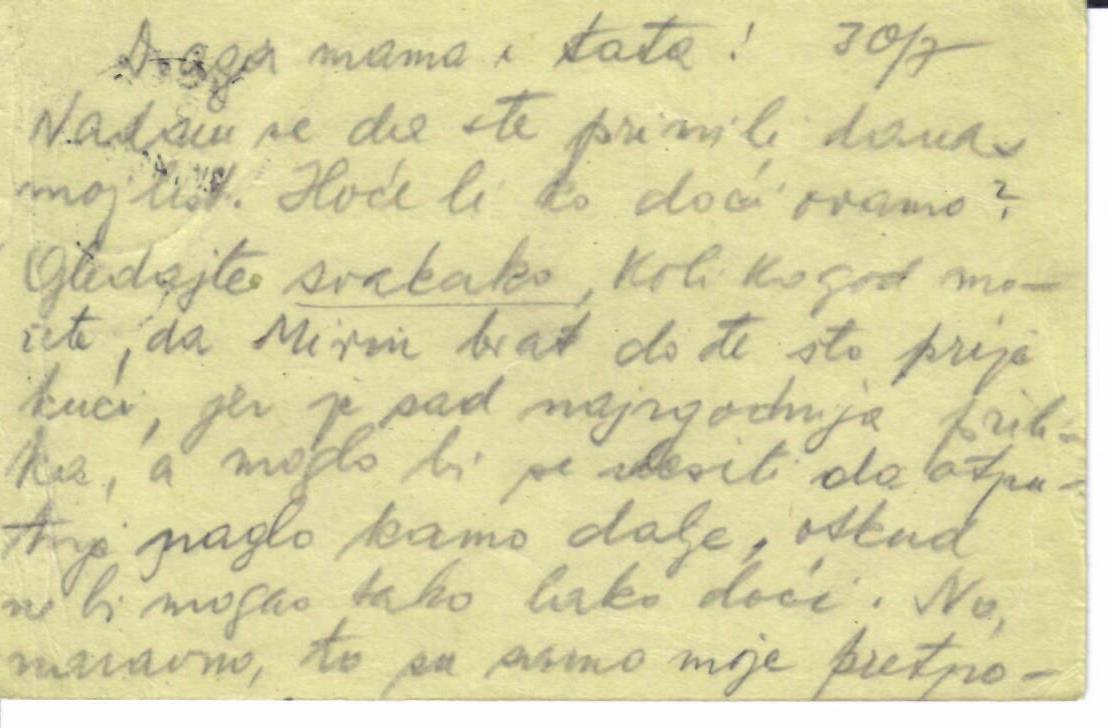 Draga mama i tata! 30/7
Nadam se da ste primili danas
moj list. Hoće li ko doći ovamo?
Gledajte svakako, koli kogod mo-
žete, da Mirin brat dođe što prije
kući, jer je sad najzgodnija prili-
ka, a moglo bi se desiti da otpu-
tuje naglo kamo dalje, otkud
ne bi mogao tako lako doći. No,
naravno, to su samo moje pretpo-